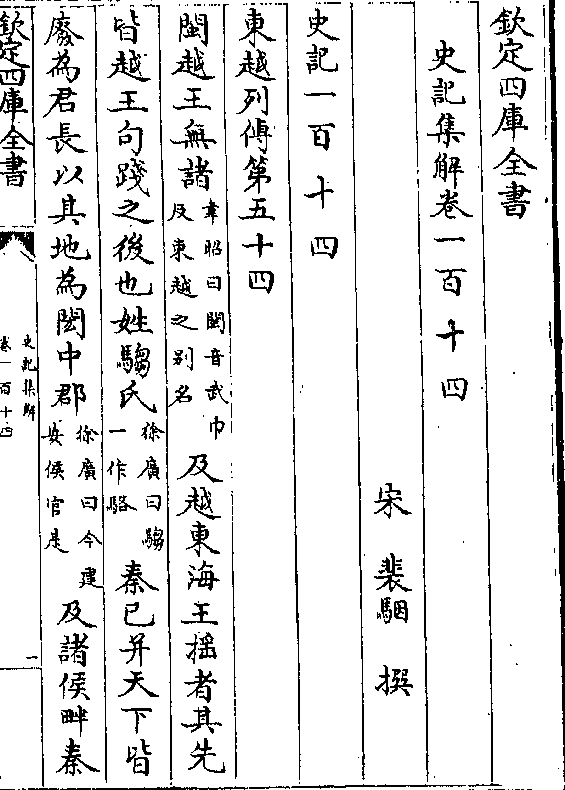 欽定四庫全書
史記集解卷一百十四
宋　裴駰　撰
史記一百十四
東越列傳第五十四
閩越王無諸韋昭曰閩音武巾反東越之别名及越東海王揺者其先
皆越王句踐之後也姓騶氏徐廣曰騶一作駱秦已并天下皆
廢為君長以其地為閩中郡徐廣曰今建安侯官是及諸侯畔秦
欽定四庫全書
史記集解
卷一百十四
一